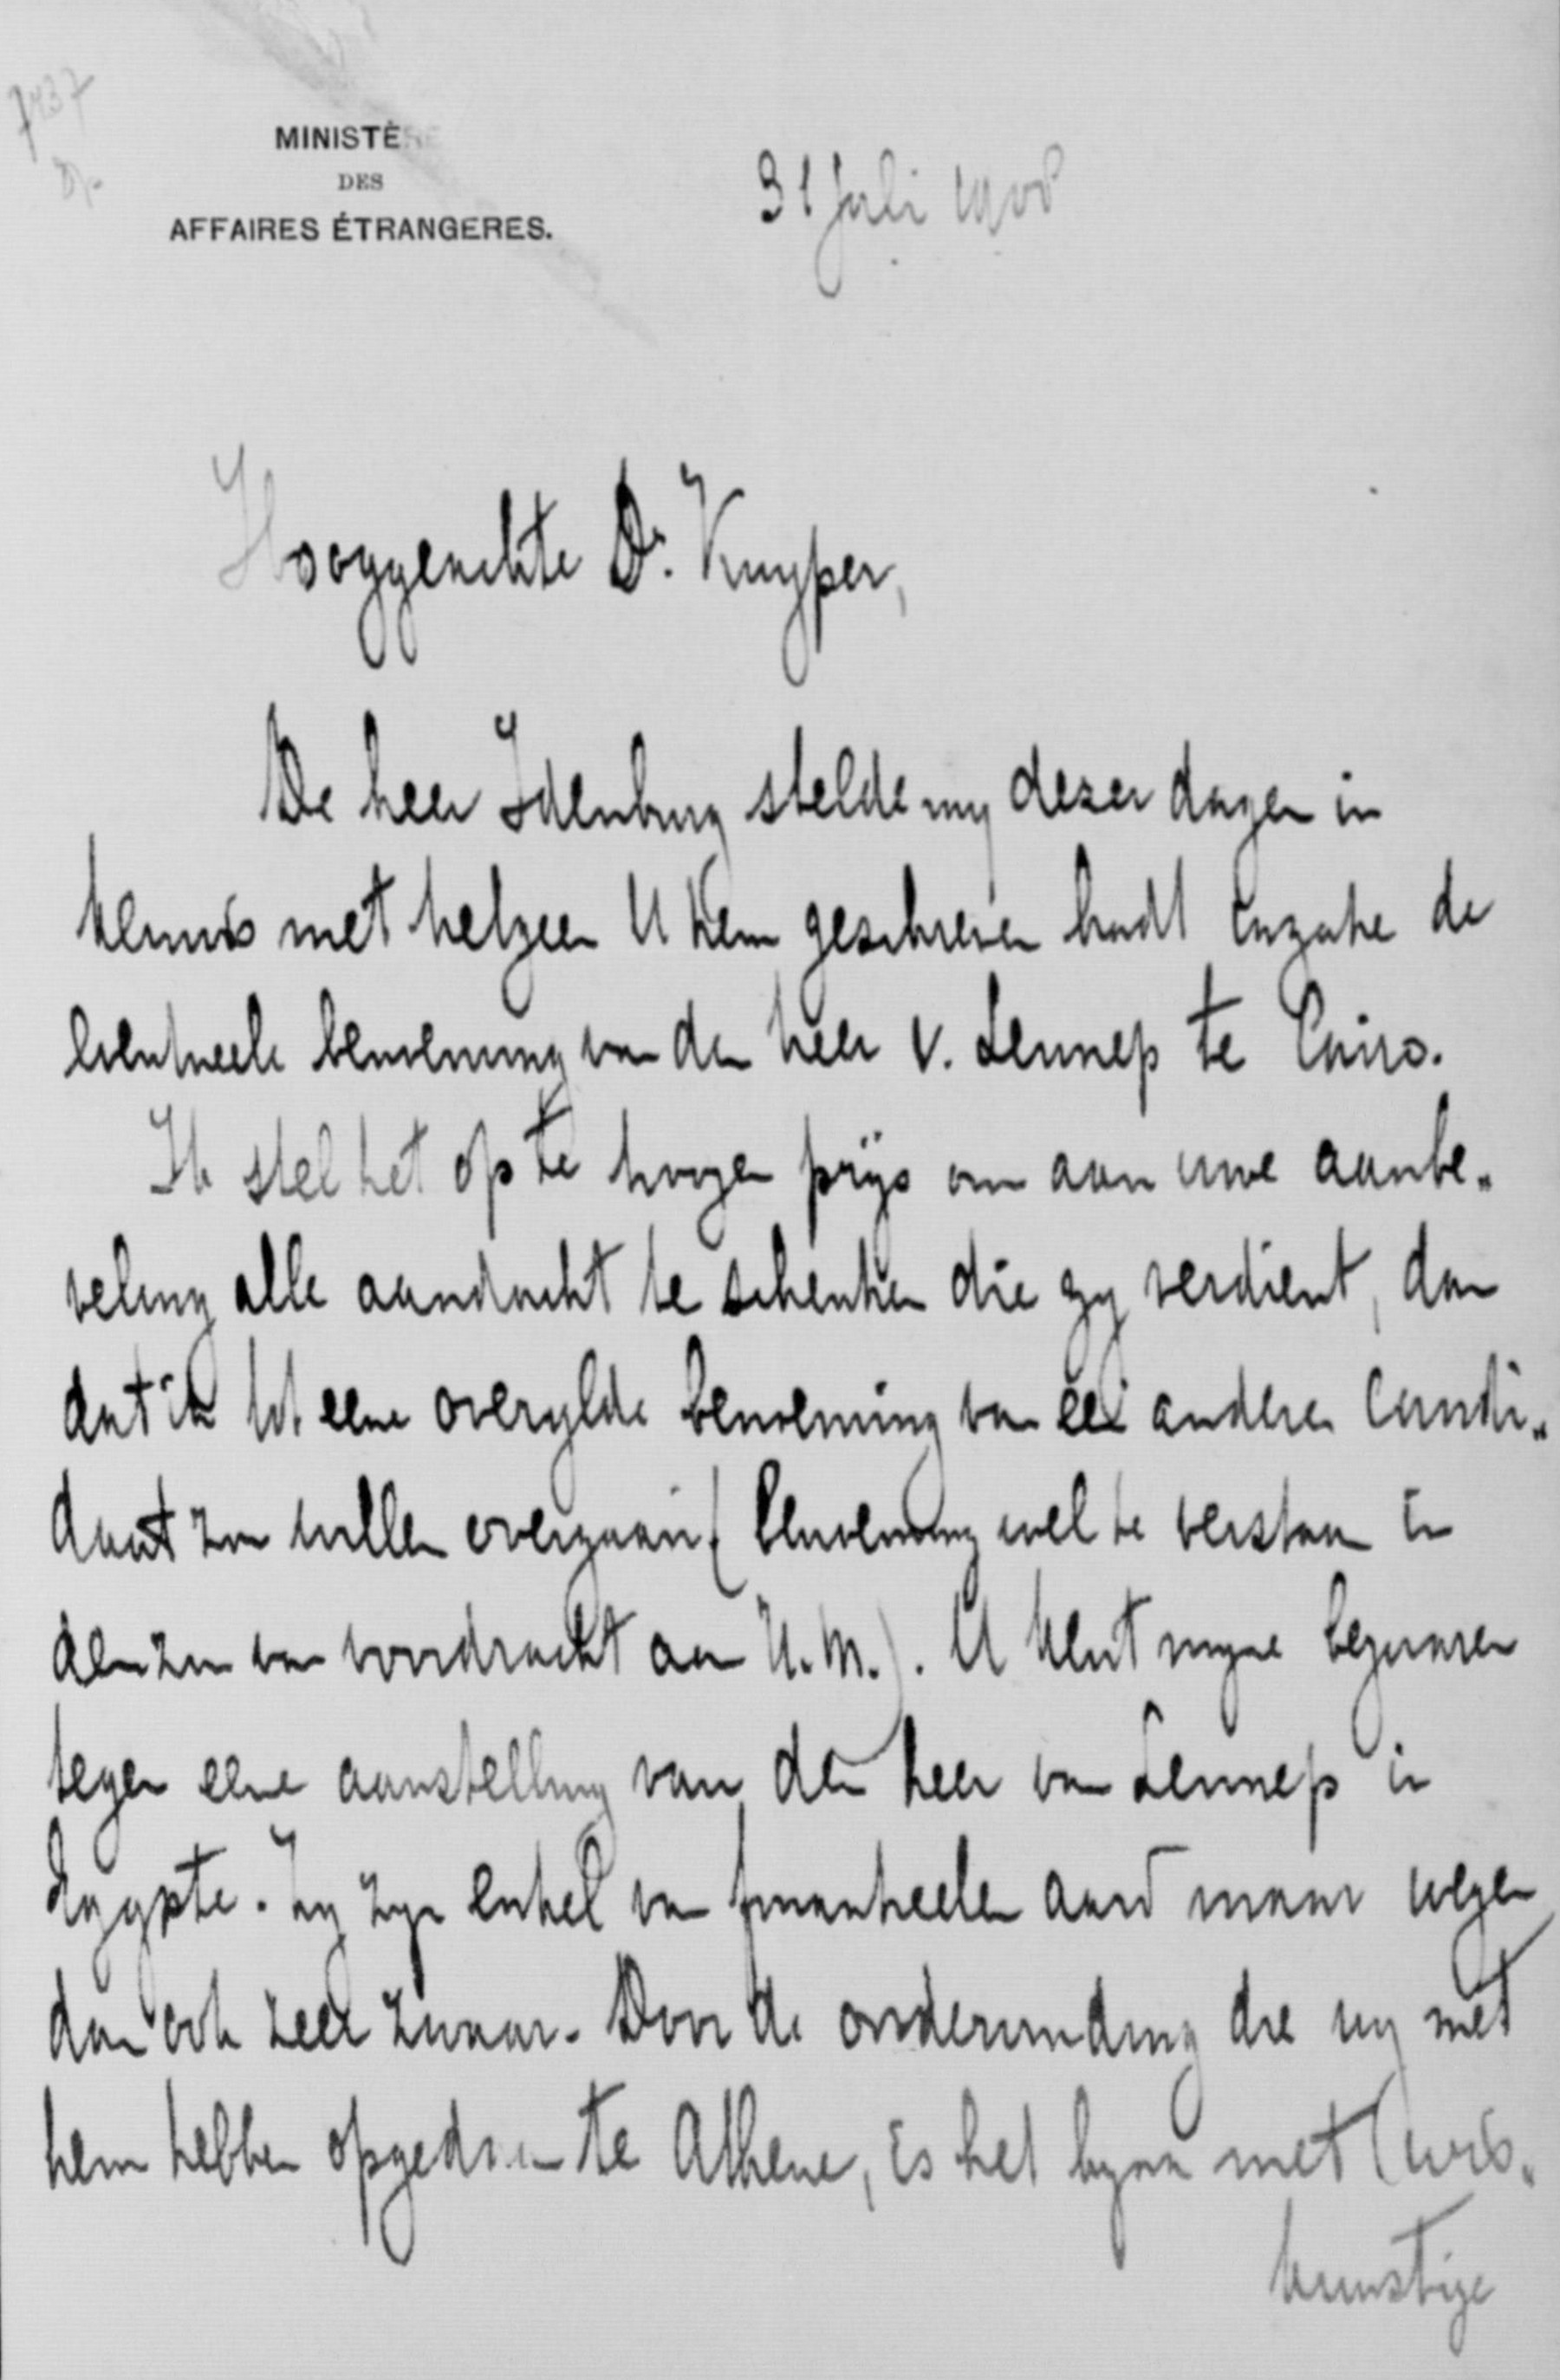 7437
MINISTÈRE
DES
AFFAIRES ÉTRANGERES.
31 Juli 1908
Hooggeachte Dr. Kuyper,
De heer Idenburg stelde my dezer dagen in
kennis met hetgeen U hem geschreven hadt inzake de
eventueele benoeming van den heer v. Lennep te Cairo.
Ik stel het op te hoogen prijs om aan uwe aanbe„
veling alle aandacht te schenken die zy verdient, dan
dat ik tot eene overylde benoeming van een anderen candi„
daat zou willen overgaan (benoeming wel te verstaan in
den zin van voordracht aan H.M.). U kent myne bezwaren
tegen eene aanstelling van den heer van Lennep in
Egypte. Zy zyn enkel van financieelen aard maar wegen
dan ook zeer zwaar. Door de ondervinding die wy met
hem hebben opgedaan te Athene, is het byna met (wis„
kunstige